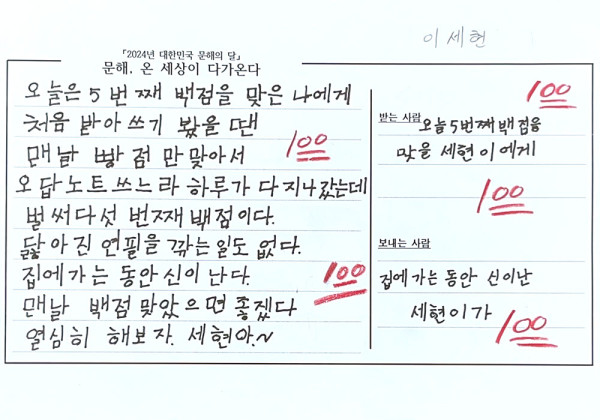 이세현
「2024년 대한민국 문해의 달」
문해, 온 세상이 다가온다
오늘은 5번째 백점을 맞은 나에게
처음 받아쓰기 봤을 땐
맨날 빵점만 맞아서
오답노트 쓰느라 하루가 다 지나갔는데
벌써 다섯 번째 백점이다.
닳아진 연필을 깎는 일도 없다.
집에 가는 동안 신이 난다.
맨날 백점 맞았으면 좋겠다
열심히 해보자. 세현아.~
100
100
100
받는 사람
오늘 5번째 백점을
맞을 세현이에게
100
보내는 사람
집에 가는 동안 신이난
세현이가
100